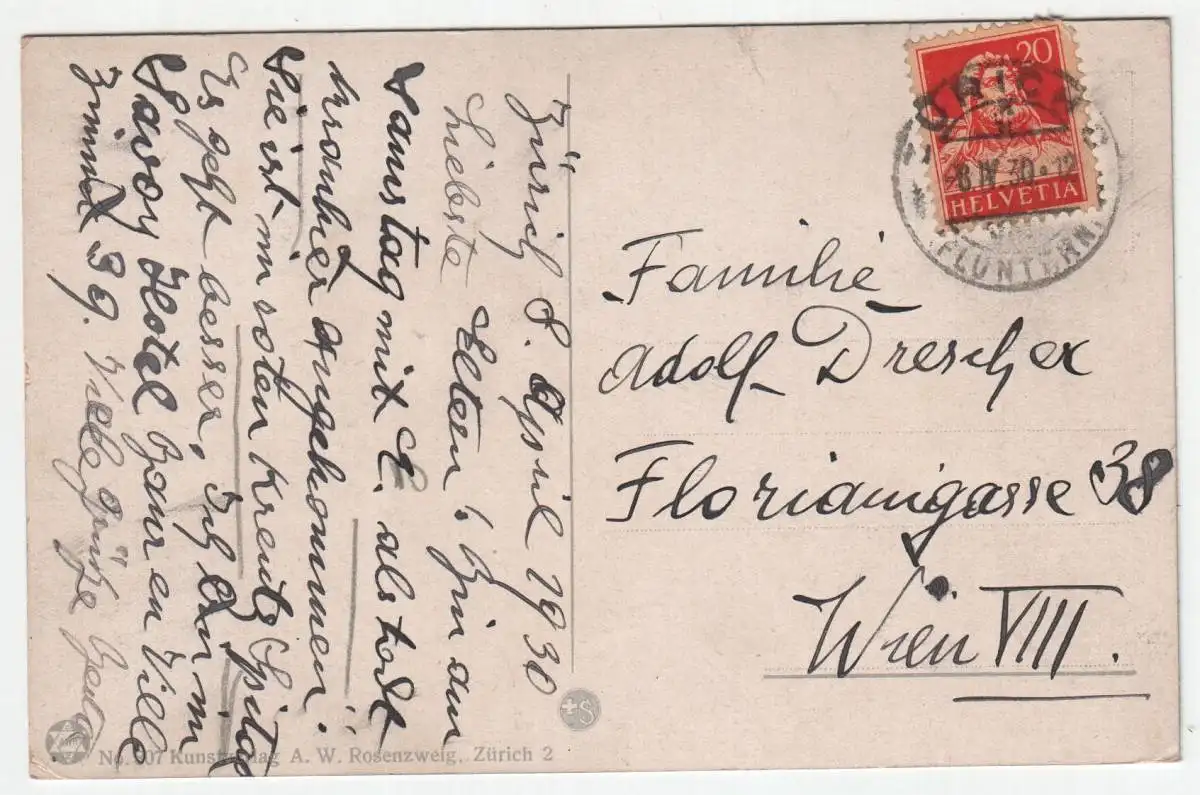 Zürich 8. April 1930
Liebste Eltern! Bin am
Samstag mit E. als todt
kranhier angekommen!
Sie ist im roten Kreutz Spital
Es geht besser, Ich bin im
Savoy Hotel Baur en Ville
Zimmer 39. Viele Grüße
Familie
Adolf Drescher
Florianigasse 38
Wien VIII.
20
HELVETIA
ZÜRICH
-8 IV 30 - 12
FLUNTERN
+S
No. 207 Kunstverlag A. W. Rosenzweig, Zürich 2